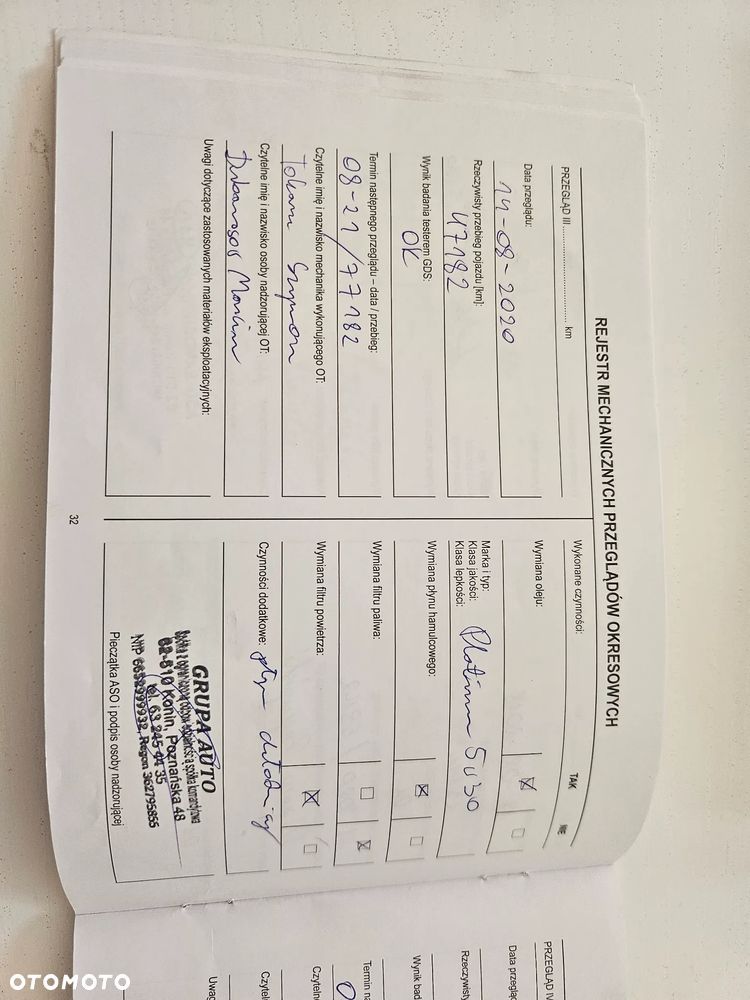 REJESTR MECHANICZNYCH PRZEGLĄDÓW OKRESOWYCH
PRZEGLĄD III .............................. km
Data przeglądu:
14-08-2020
Rzeczywisty przebieg pojazdu [km]:
47182
Wynik badania testerem GDS:
OK
Termin następnego przeglądu – data / przebieg:
08-21/77182
Czytelne imię i nazwisko mechanika wykonującego OT:
Szymon
Czytelne imię i nazwisko osoby nadzorującej OT:
Marcin
Uwagi dotyczące zastosowanych materiałów eksploatacyjnych:
Wykonane czynności: TAK NIE
Wymiana oleju:
Marka i typ:
Klasa jakości:
Klasa lepkości:
Platinum 5W30
Wymiana płynu hamulcowego:
Wymiana filtru paliwa:
Wymiana filtru powietrza:
Czynności dodatkowe: płyn chłodniczy
GRUPA AUTO
Spółka z ograniczoną odpowiedzialnością spółka komandytowa
62-510 Konin, Poznańska 48
tel. 63 245 44 35
NIP 6652999932, Regon 362795855
Pieczątka ASO i podpis osoby nadzorującej
32
PRZEGLĄD IV
Data przeglą
Rzeczywisty
Wynik bad
Termin na
0
Czyteln
Czytel
Uwag
OTOMOTO